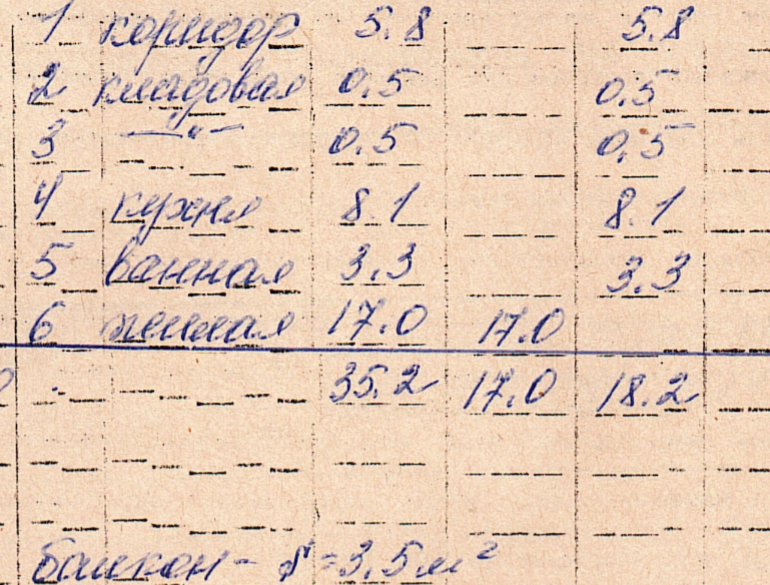 1 коридор 5.8 5.8
2 кладовая 0.5 0.5
3 —"— 0.5 0.5
4 кухня 8.1 8.1
5 ванная 3.3 3.3
6 жилая 17.0 17.0
35.2 17.0 18.2
балкон - S = 3,5 м²